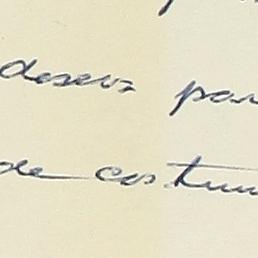 deseos par
de costum